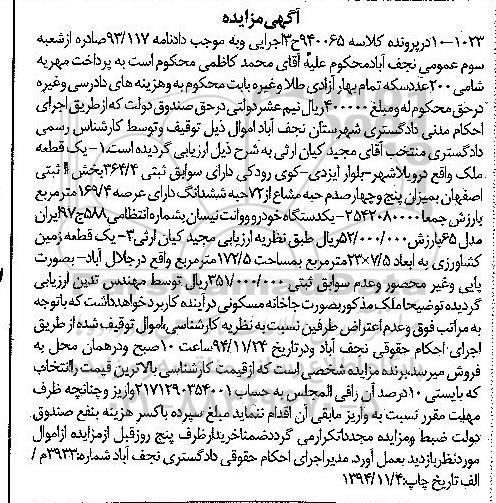 آگهی مزایده
۱۰-۱۰۲۳درپرونده کلاسه ۹۴۰۰۶۵ح۳اجرایی وبه موجب دادنامه ۹۳/۱۱۷صادره ازشعبه
سوم عمومی نجف آبادمحکوم علیه آقای محمد کاظمی محکوم است به پرداخت مهریه
شامی ۲۰۰عددسکه تمام بهار آزادی طلا وغیره بابت محکوم به وهزینه های دادرسی وغیره
درحق محکوم له ومبلغ ۴۰۰۰۰۰ریال نیم عشر دولتی درحق صندوق دولت که ازطریق اجرای
احکام مدنی دادگستری شهرستان نجف آباد اموال ذیل توقیف وتوسط کارشناس رسمی
دادگستری منتخب آقای مجید کیان ارثی به شرح ذیل ارزیابی گردیده است.۱- یک قطعه
ملک واقع درویلاشهر-بلوار ایزدی-کوی رودکی دارای سوابق ثبتی ۳۶۴/۴بخش ۱۱ ثبتی
اصفهان بمیزان پنج وچهارصدم حبه مشاع از۷۲حبه ششدانگ دارای عرصه ۱۶۹/۴ مترمربع
بارزش جمعا۲۵۴۲۰۸۰۰۰۰-یکدستگاه خودرو ووانت نیسان بشماره انتظامی۵۸۸ج۹۷ایران
مدل ۶۵بارزش۵۲/۰۰۰/۰۰۰ریال طبق نظریه ارزیابی مجید کیان ارثی۳- یک قطعه زمین
کشاورزی به ابعاد ۲۳×۷/۵مترمربع بمساحت ۱۷۲/۵مترمربع واقع درجلال آباد- بصورت
پایی وغیر محصور وعدم سوابق ثبتی ۳۵۱/۰۰۰/۰۰۰ریال توسط مهندس تدین ارزیابی
گردیده توضیحاملک مذکوربصورت جاخانه مسکونی درآینده کاربردخواهدداشت که باتوجه
به مراتب فوق وعدم اعتراض طرفین نسبت به نظریه کارشناسی،اموال توقیف شده از طریق
اجرای احکام حقوقی نجف آباد ودرتاریخ ۹۴/۱۱/۲۴ساعت ۱۰صبح ودرهمان محل به
فروش میرسد.برنده مزایده شخصی است که ازقیمت کارشناسی بالاترین قیمت راانتخاب
که بایستی ۱۰درصد آن رافی المجلس به حساب ۲۱۷۱۲۹۰۳۵۴۰۰۱واریز وچنانچه ظرف
مهلت مقرر نسبت به واریز مابقی آن اقدام ننماید مبلغ سپرده باکسر هزینه بنفع صندوق
دولت ضبط ومزایده مجدداتکرارمی گرددضمناخریدارظرف پنج روزقبل ازمزایده ازاموال
موردنظربازدید بعمل آورد. مدیراجرای احکام حقوقی دادگستری نجف آباد شماره:۳۹۳۳م/
الف تاریخ چاپ:۱۳۹۴/۱۱/۴